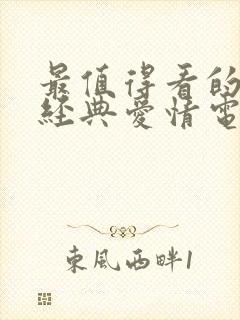 最值得看的
經典愛情電
東風西畔1